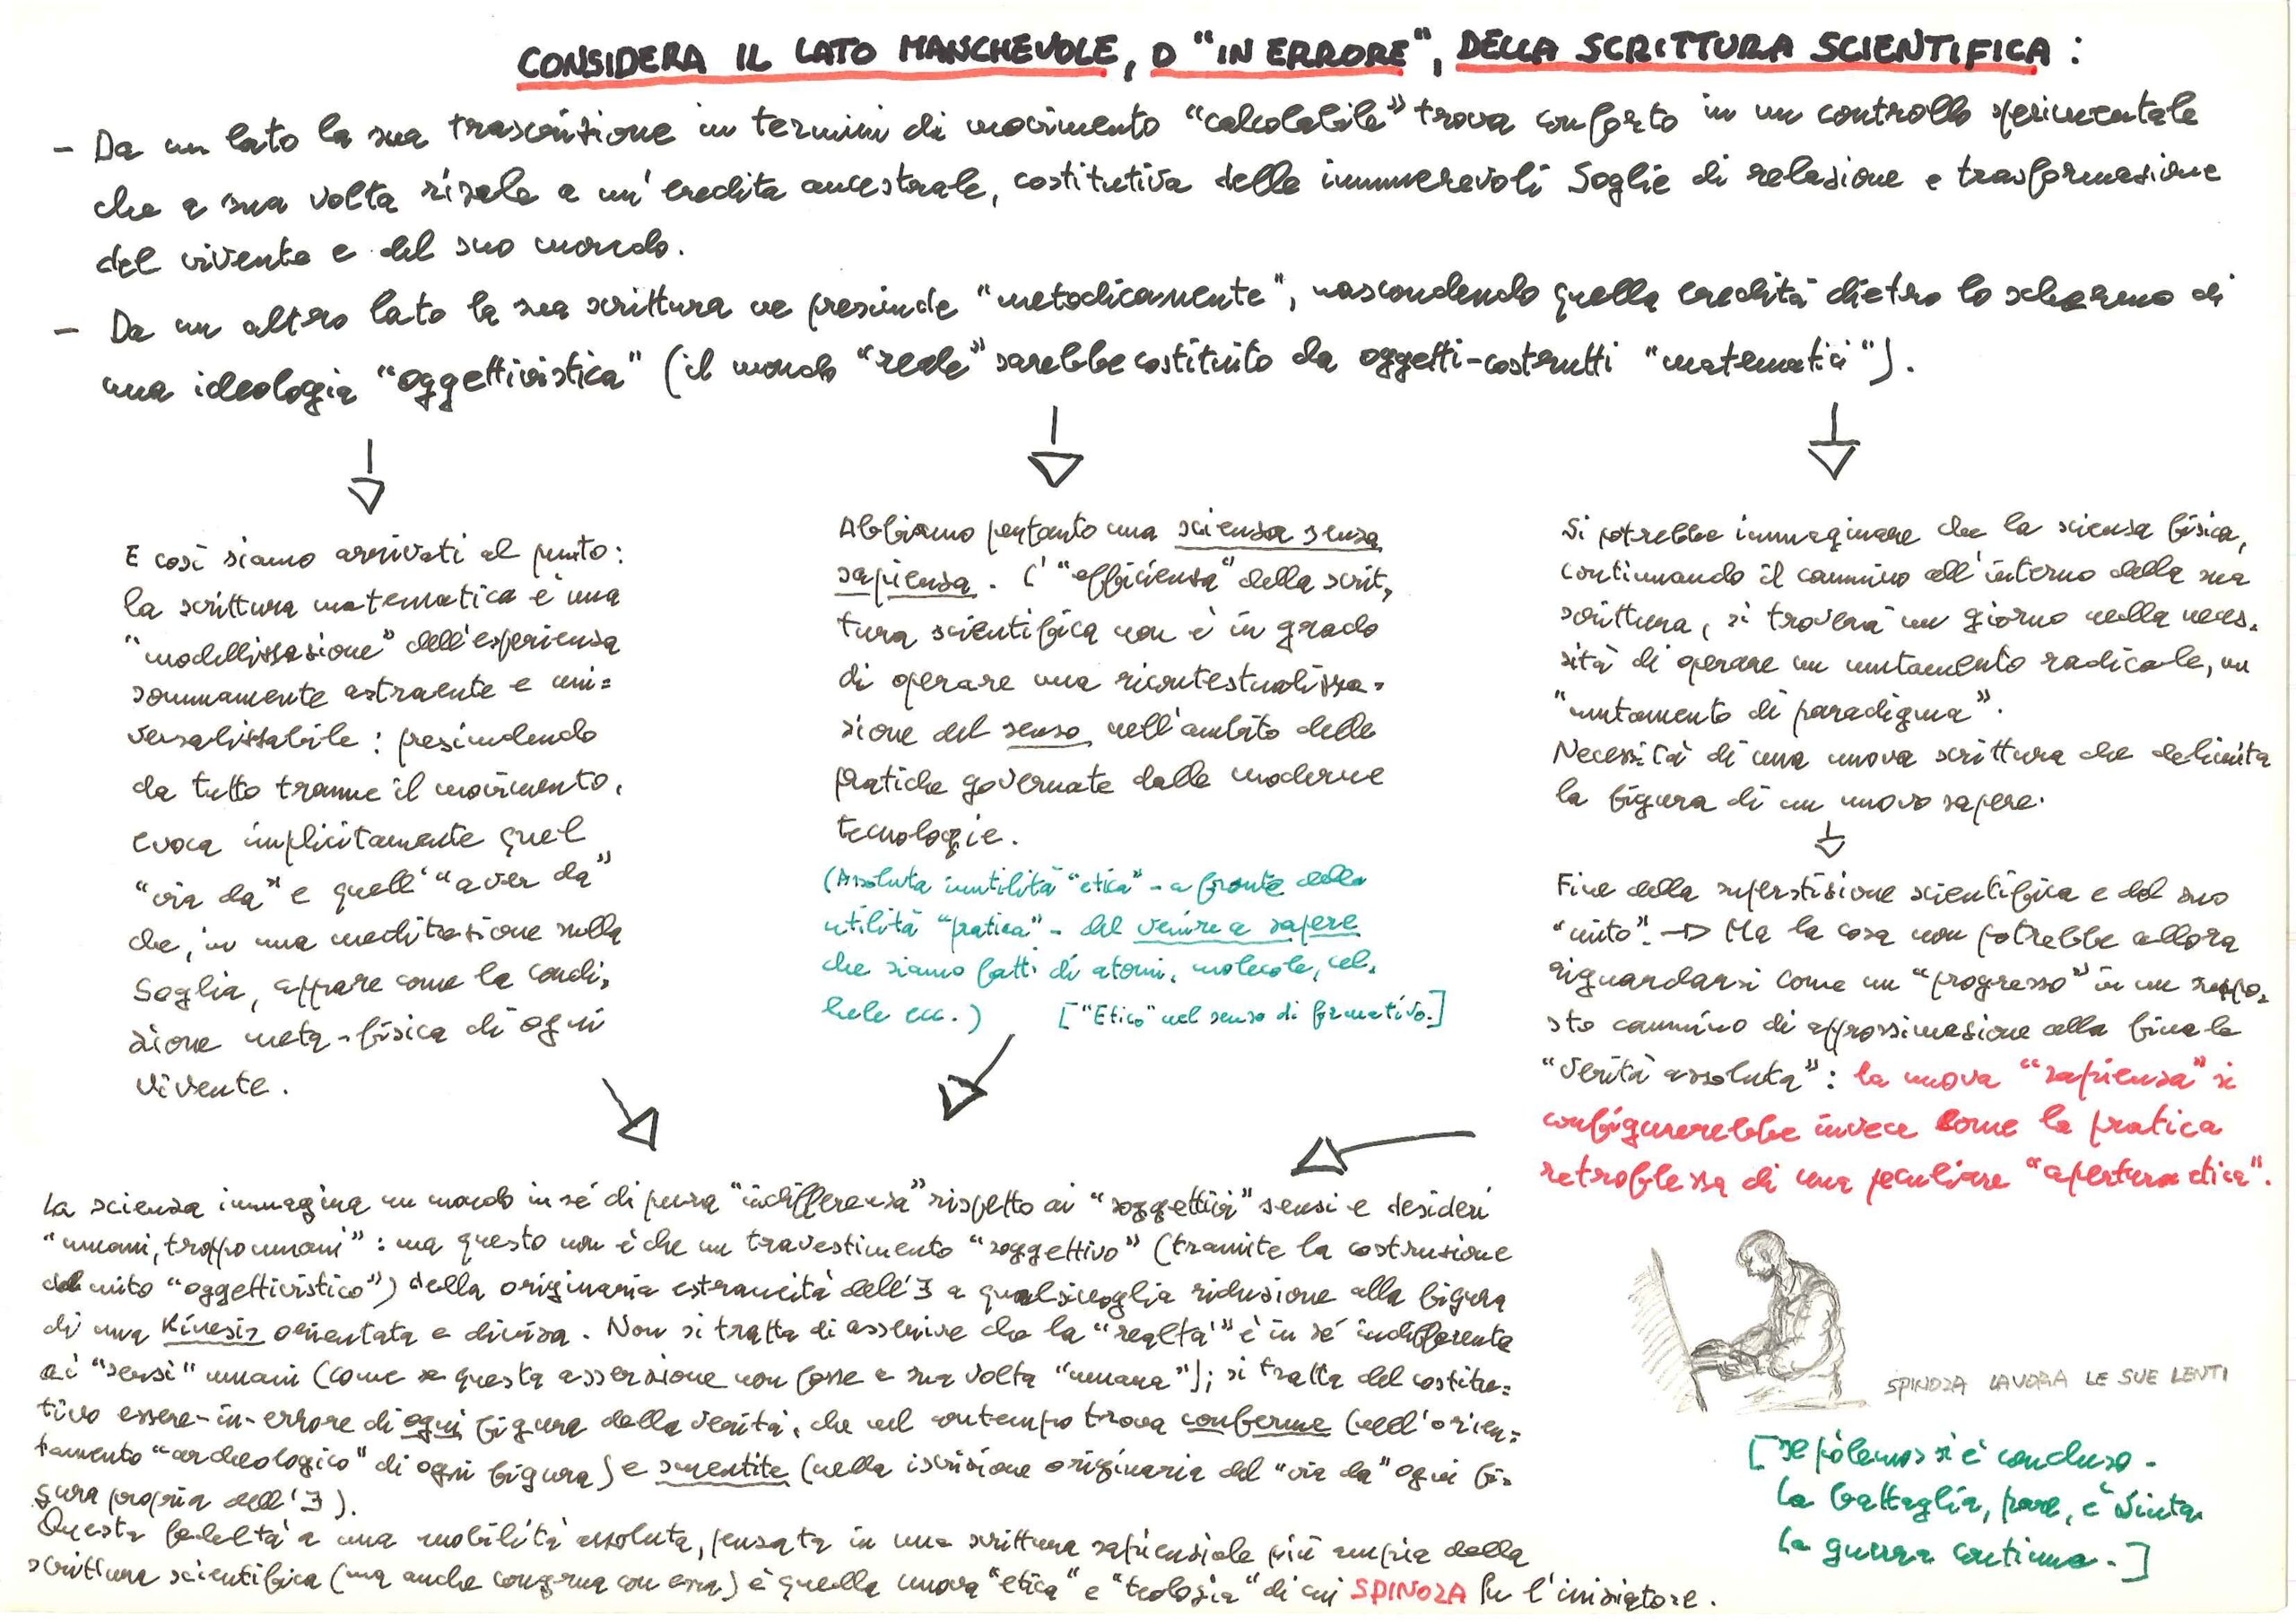 CONSIDERA IL LATO MANCHEVOLE, O "IN ERRORE", DELLA SCRITTURA SCIENTIFICA :
- Da un lato la sua trascrizione in termini di movimento "calcolabile" trova conforto in un controllo sperimentale
che a sua volta risale a un'eredità ancestrale, costitutiva delle innumerevoli Soglie di relazione e trasformazione
del vivente e del suo mondo.
- Da un altro lato la sua scrittura ne prescinde "metodicamente", nascondendo quella eredità dietro lo schermo di
una ideologia "oggettivistica" (il mondo "reale" sarebbe costituito da oggetti-costrutti "matematici").
E così siamo arrivati al punto:
la scrittura matematica è una
"modellizzazione" dell'esperienza
sommamente astraente e uni=
versalizzabile : prescindendo
da tutto tranne il movimento,
evoca implicitamente quel
"via da" e quell'"aver da"
che, in una meditazione sulla
Soglia, appare come la condi,
zione meta-fisica di ogni
vivente.
Abbiamo pertanto una scienza senza
sapienza. L'"efficienza" della scrit,
tura scientifica non è in grado
di operare una ricontestualizza=
zione del senso nell'ambito delle
pratiche governate dalle moderne
tecnologie.
(Assoluta inutilità "etica" - a fronte della
utilità "pratica" - del venire a sapere
che siamo fatti di atomi, molecole, cel,
lule ecc.) ["Etico" nel senso di formativo.]
Si potrebbe immaginare che la scienza fisica,
continuando il cammino all'interno della sua
scrittura, si troverà un giorno nella neces,
sità di operare un mutamento radicale, un
"mutamento di paradigma".
Necessità di una nuova scrittura che delimita
la figura di un nuovo sapere.
Fine della superstizione scientifica e del suo
"mito". → Ma la cosa non potrebbe allora
riguardarsi come un "progresso" in un suppo,
sto cammino di approssimazione alla finale
"Verità assoluta" : la nuova "sapienza" si
configurerebbe invece come la pratica
retroflessa di una peculiare "apertura etica".
La scienza immagina un mondo in sé di pura "indifferenza" rispetto ai "soggettivi" sensi e desideri
"umani, troppo umani" : ma questo non è che un travestimento "soggettivo" (tramite la costruzione
del mito "oggettivistico") della originaria estraneità dell'∃ a qualsivoglia riduzione alla figura
di una Kinesis orientata e divisa. Non si tratta di asserire che la "realtà" è in sé indifferente
ai "sensi" umani (come se questa asserzione non fosse a sua volta "umana"); si tratta del costitu=
tivo essere-in-errore di ogni figura della verità, che nel contempo trova conferme (nell'orien=
tamento "archeologico" di ogni figura) e smentite (nella iscrizione originaria del "via da" ogni fi=
gura propria dell'∃).
Questa fedeltà a una mobilità assoluta, pensata in una scrittura sapienziale più ampia della
scrittura scientifica (ma anche congrua con essa) è quella nuova "etica" e "teologia" di cui SPINOZA fu l'iniziatore.
SPINOZA LAVORA LE SUE LENTI
[Il pòlemos si è concluso.
La battaglia, pare, è vinta.
La guerra continua.]